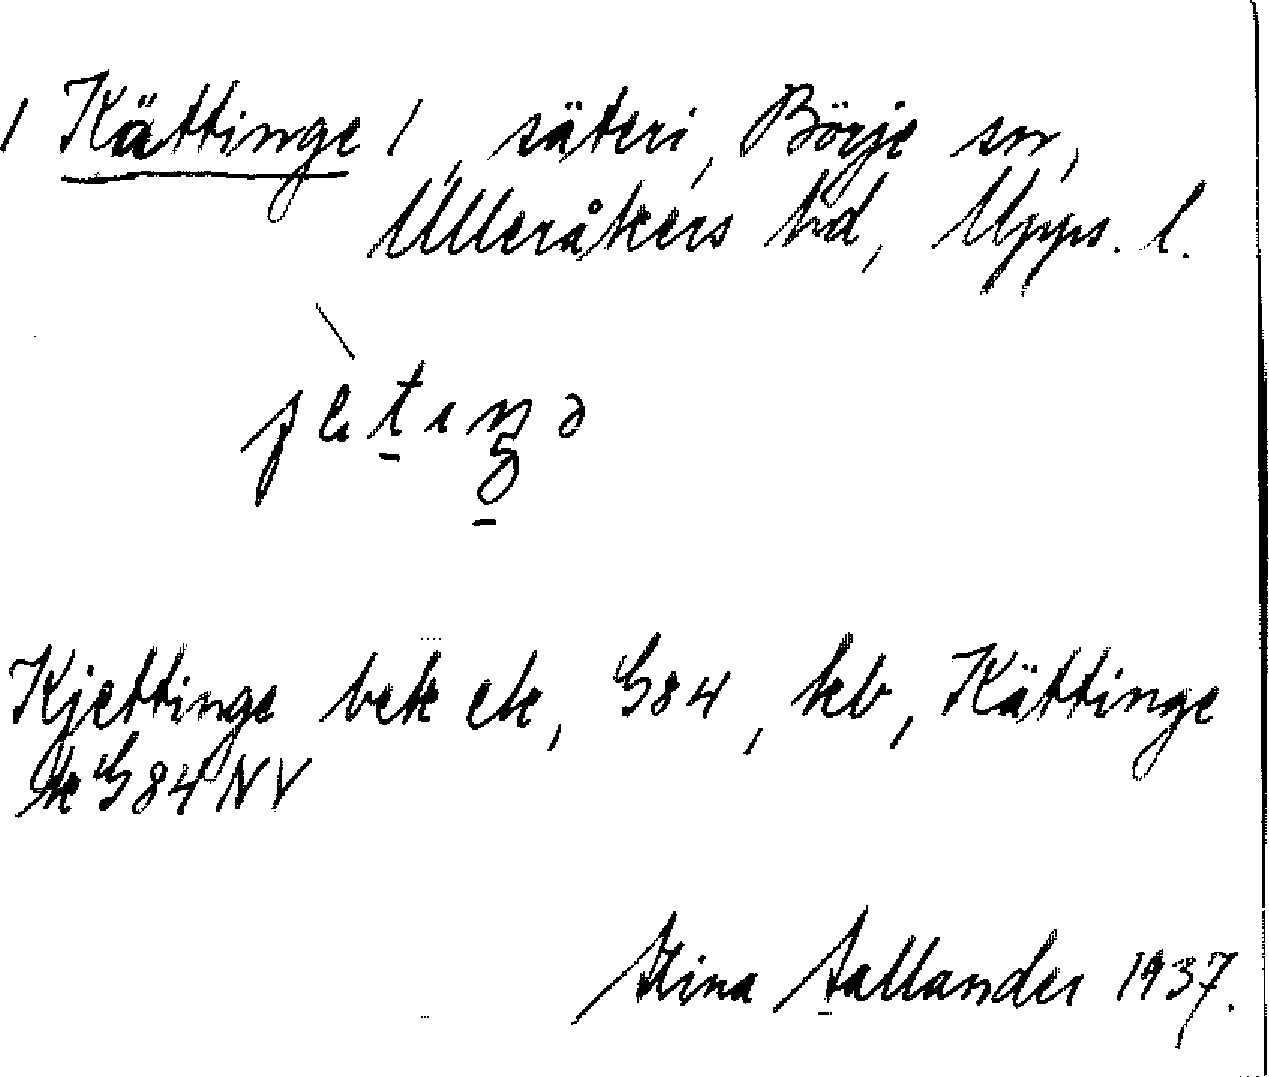 / Kättinge /, säteri, Börje sn,
Ulleråkers hd, Upps. l.
Kjettinge bek ek, G84, kb, Kättinge
G84 NV
Stina Sallander 1937.